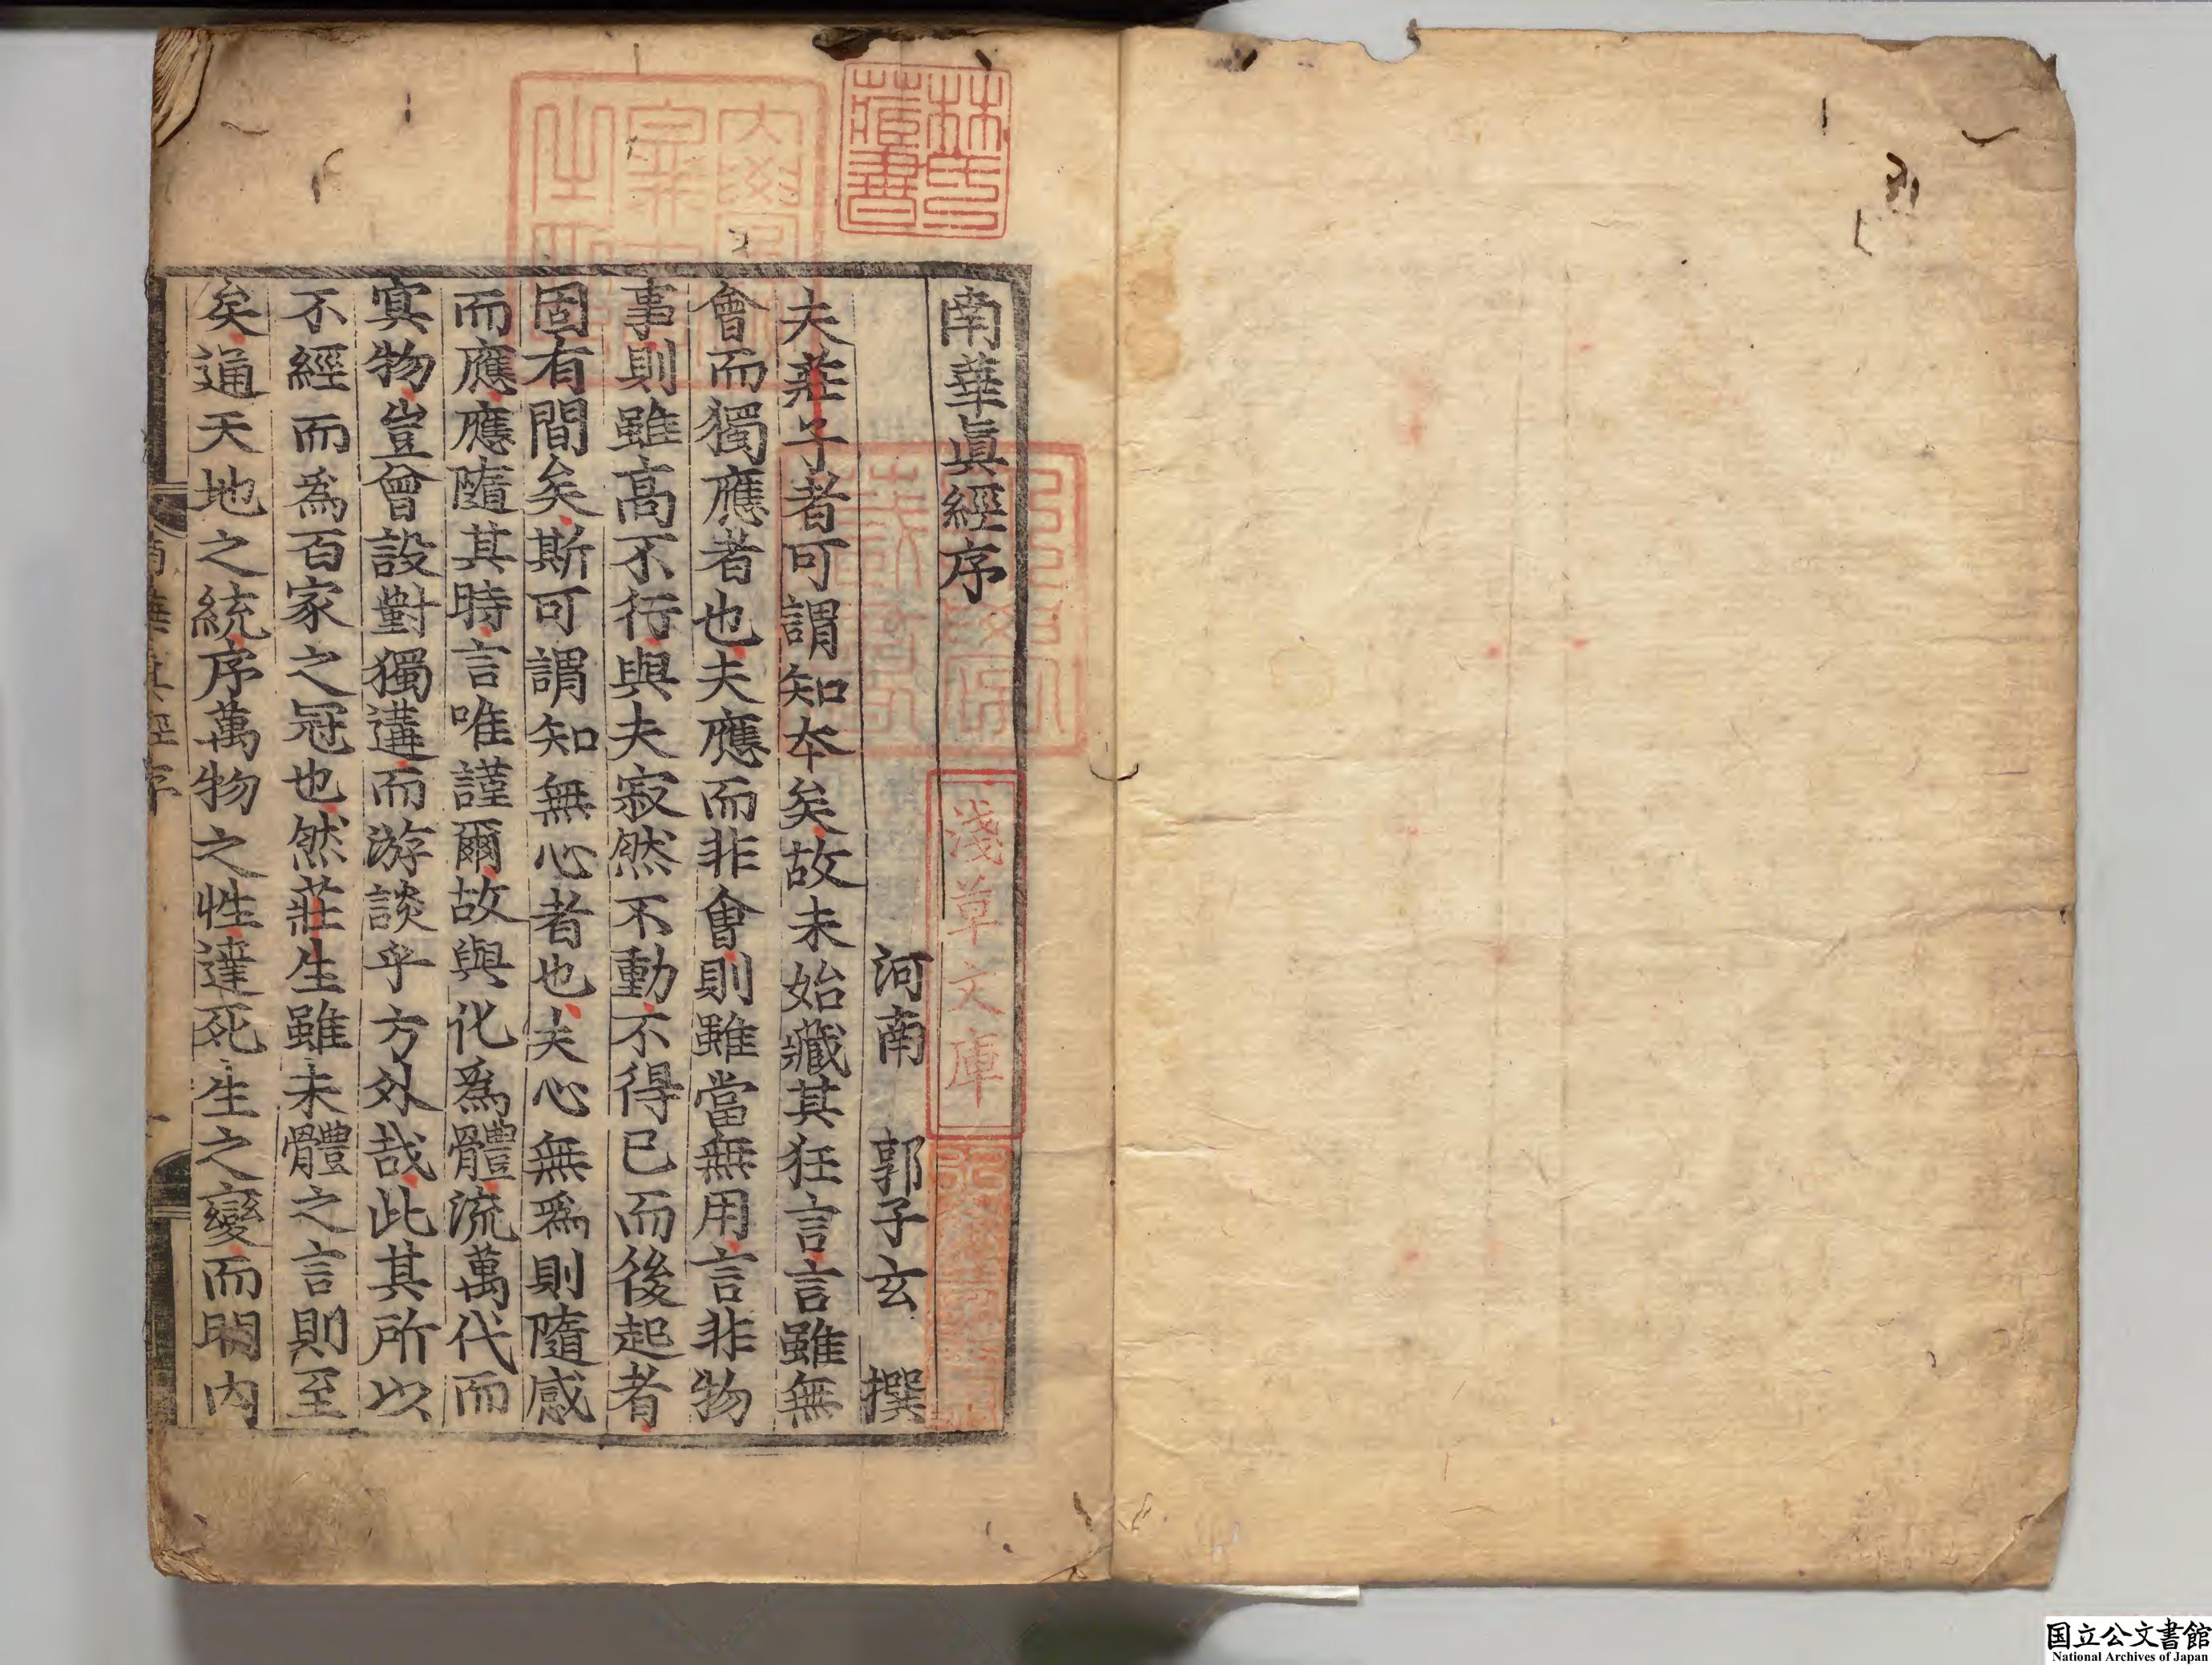 南華眞經序
河南 郭子玄 撰
夫莊子者可謂知夲矣故未始藏其狂言言雖無
會而獨應者也夫應而非會則雖當無用言非物
事則雖高不行與夫寂然不動不得已而後起者
固有間矣斯可謂知無心者也夫心無爲則隨感
而應應隨其時言唯謹爾故與化爲體流萬代而
冥物豈曾設對獨遘而游談乎方外哉此其所以
不經而爲百家之冠也然莊生雖未體之言則至
矣通天地之統序萬物之性達死生之變而明內
南華眞經序
林氏藏書
淺草文庫
国立公文書館
National Archives of Japan